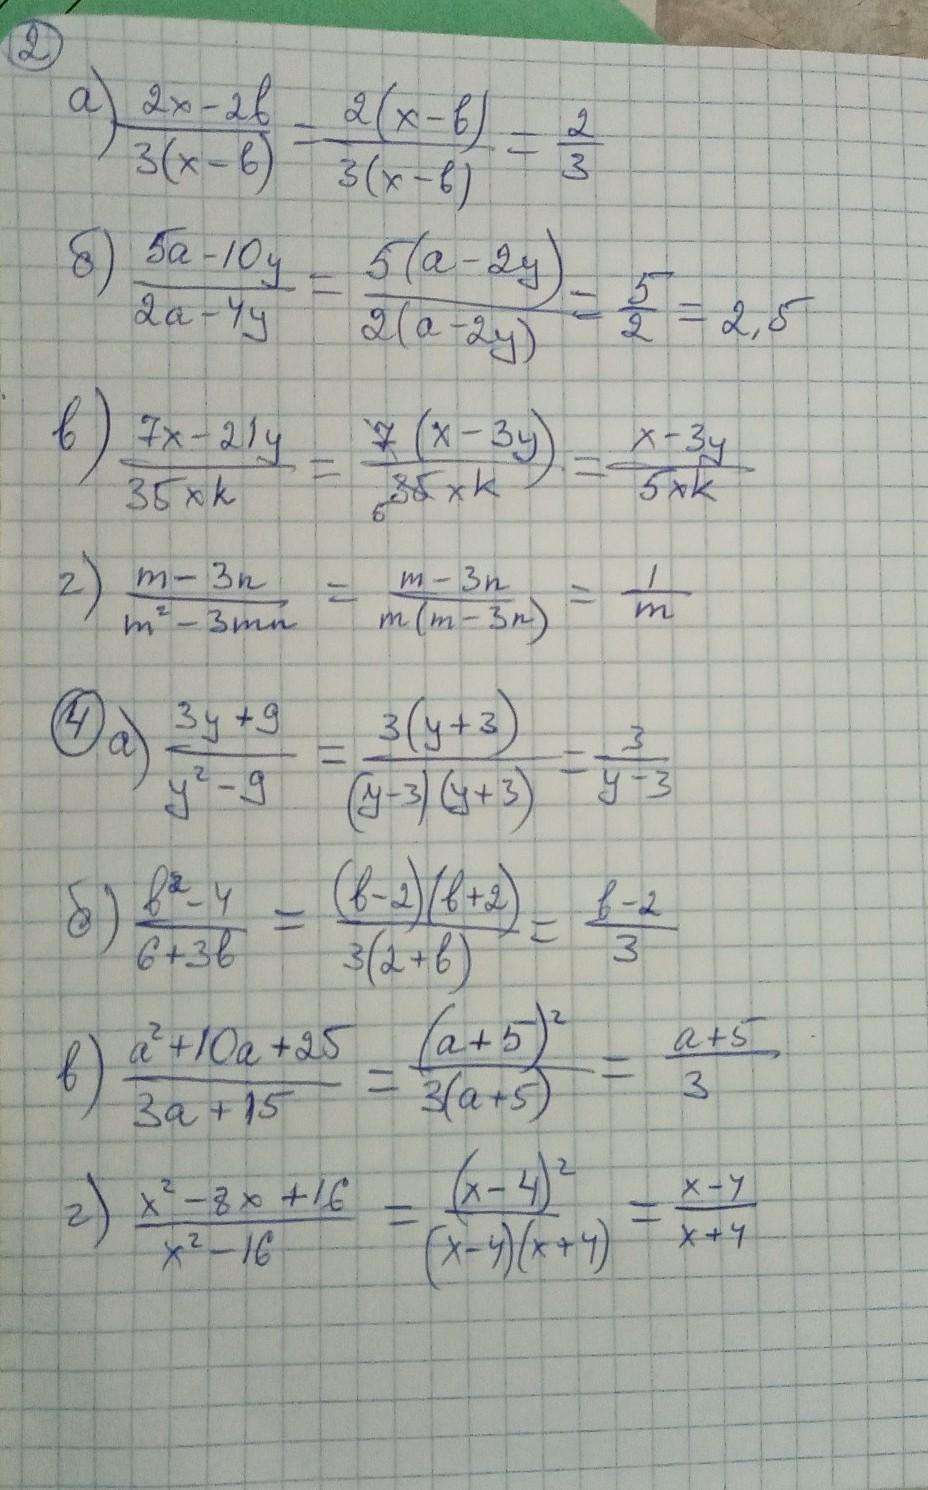 2
а) (2x-2b)/(3(x-b)) = (2(x-b))/(3(x-b)) = 2/3
б) (5a-10y)/(2a-4y) = (5(a-2y))/(2(a-2y)) = 5/2 = 2,5
в) (7x-21y)/(35xk) = (7(x-3y))/(35xk) = (x-3y)/(5xk)
г) (m-3n)/(m²-3mn) = (m-3n)/(m(m-3n)) = 1/m
4 а) (3y+9)/(y²-9) = (3(y+3))/((y-3)(y+3)) = 3/(y-3)
б) (b²-4)/(6+3b) = ((b-2)(b+2))/(3(2+b)) = (b-2)/3
в) (a²+10a+25)/(3a+15) = (a+5)²/(3(a+5)) = (a+5)/3
г) (x²-8x+16)/(x²-16) = (x-4)²/((x-4)(x+4)) = (x-4)/(x+4)